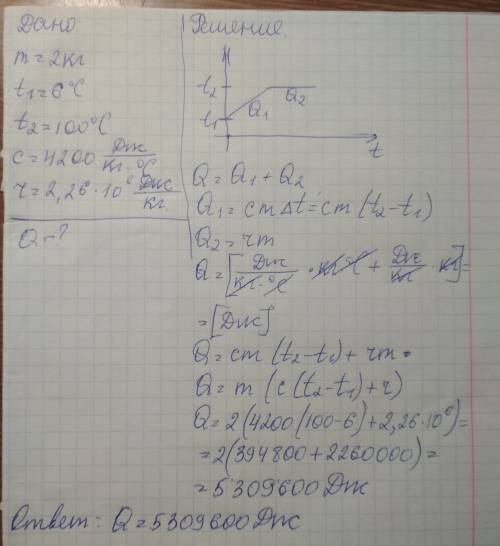 Дано:
m = 2кг
t₁ = 6°C
t₂ = 100°C
c = 4200 Дж/кг·°C
r = 2,26·10⁶ Дж/кг
Q - ?
Решение.
t₂
t₁
Q₁
Q₂
t
Q = Q₁ + Q₂
Q₁ = cmΔt = cm(t₂-t₁)
Q₂ = rm
Q = [Дж/кг·°C · кг·°C + Дж/кг · кг] =
= [Дж]
Q = cm(t₂-t₁) + rm =
Q = m(c(t₂-t₁)+r)
Q = 2(4200(100-6)+2,26·10⁶) =
= 2(394800+2260000) =
= 5309600 Дж
Ответ: Q = 5309600 Дж